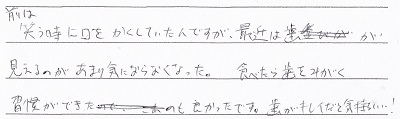 前は
笑う時に口をかくしていたんですが、最近は歯が
見えるのがあまり気にならなくなった。 食べたら歯をみがく
習慣ができたのも良かったです。歯がキレイだと気持ちいい!